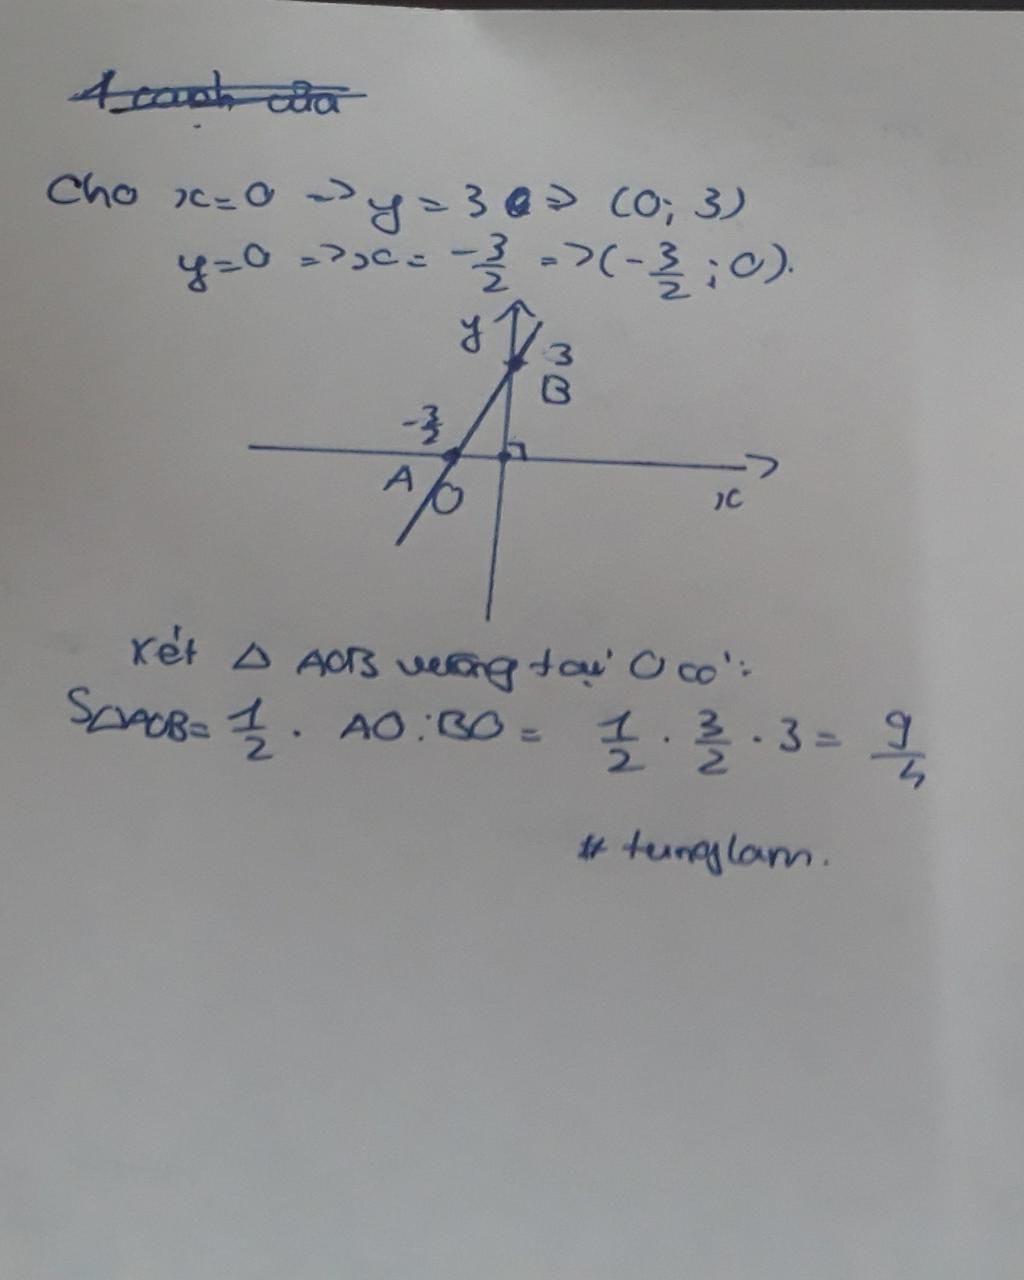 1 cạnh của
Cho x=0 => y=3 => (0; 3)
y=0 => x= -3/2 => (-3/2; 0).
y
3
B
-3/2
A O
x
Xét △ AOB vuông tại O có:
S△AOB= 1/2 . AO:BO = 1/2 . 3/2 . 3 = 9/4
# tunglam.